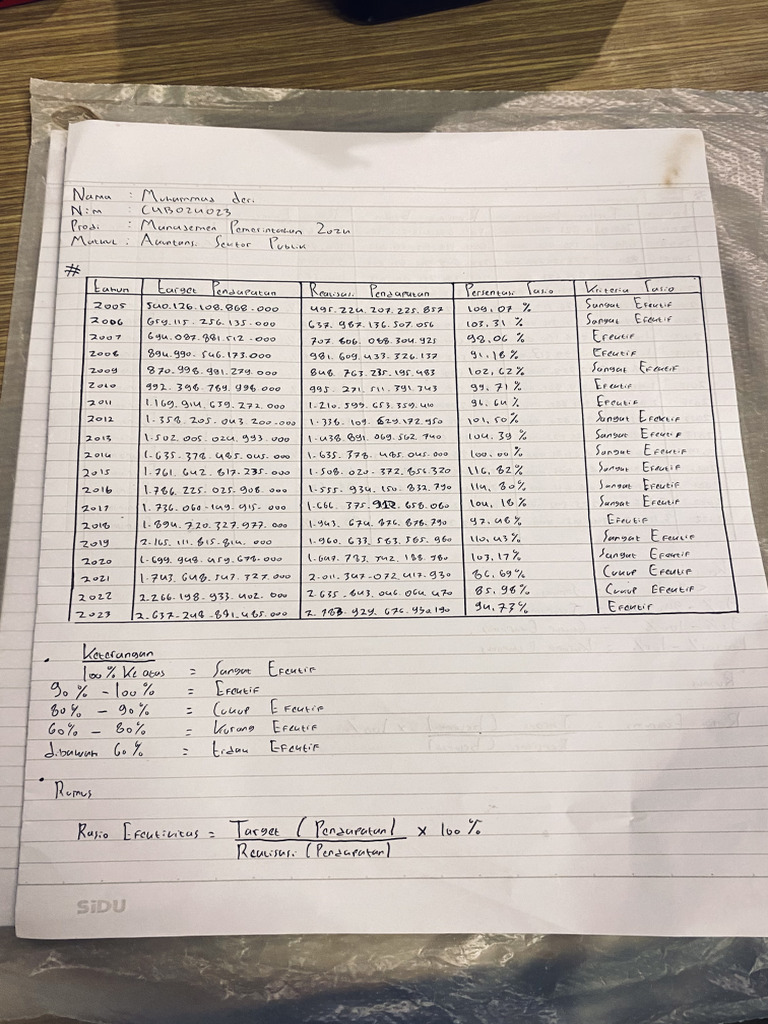 Nama : Muhammad deri
Nim : C4B024023
Prodi : Manajemen Pemerintahan 2024
Matkul : Akuntansi Sektor Publik
#
tahun target Pendapatan Realisasi Pendapatan Persentasi rasio Kriteria rasio
2005 540.126.108.868.000 495.224.207.225.857 109,07 % Sangat Efektif
2006 659.115.256.135.000 637.987.136.507.056 103,31 % Sangat Efektif
2007 694.087.881.512.000 707.806.088.304.925 98,06 % Efektif
2008 894.990.546.173.000 981.609.433.326.137 91,18 % Efektif
2009 870.998.981.279.000 848.763.235.195.483 102,62 % Sangat Efektif
2010 992.398.769.998.000 995.271.511.391.343 99,71 % Efektif
2011 1.169.914.639.272.000 1.210.599.653.359.410 96,64 % Efektif
2012 1.358.205.043.200.000 1.338.109.629.172.950 101,50 % Sangat Efektif
2013 1.502.005.024.993.000 1.438.891.069.562.740 104,39 % Sangat Efektif
2014 1.635.378.485.045.000 1.635.378.485.045.000 100,00 % Sangat Efektif
2015 1.761.642.817.235.000 1.508.020.372.856.320 116,82 % Sangat Efektif
2016 1.786.225.025.908.000 1.555.934.150.832.790 114,80 % Sangat Efektif
2017 1.736.060.149.915.000 1.666.375.912.658.060 104,18 % Sangat Efektif
2018 1.894.720.327.977.000 1.943.674.876.878.790 97,48 % Efektif
2019 2.165.111.815.814.000 1.960.633.583.585.960 110,43 % Sangat Efektif
2020 1.699.948.459.678.000 1.647.783.342.188.980 103,17 % Sangat Efektif
2021 1.743.648.547.327.000 2.011.347.072.417.930 86,69 % Cukup Efektif
2022 2.266.198.933.402.000 2.635.843.046.064.470 85,98 % Cukup Efektif
2023 2.637.248.891.485.000 2.783.929.676.930.190 94,73 % Efektif
• Keterangan
100% ke atas = Sangat Efektif
90 % - 100 % = Efektif
80 % - 90 % = Cukup Efektif
60 % - 80 % = Kurang Efektif
dibawah 60 % = tidak Efektif
• Rumus
Rasio Efektivitas = Target (Pendapatan) × 100 %
Realisasi (Pendapatan)
SiDU